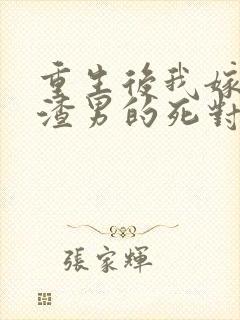 重生後我嫁
渣男的死對
張家輝